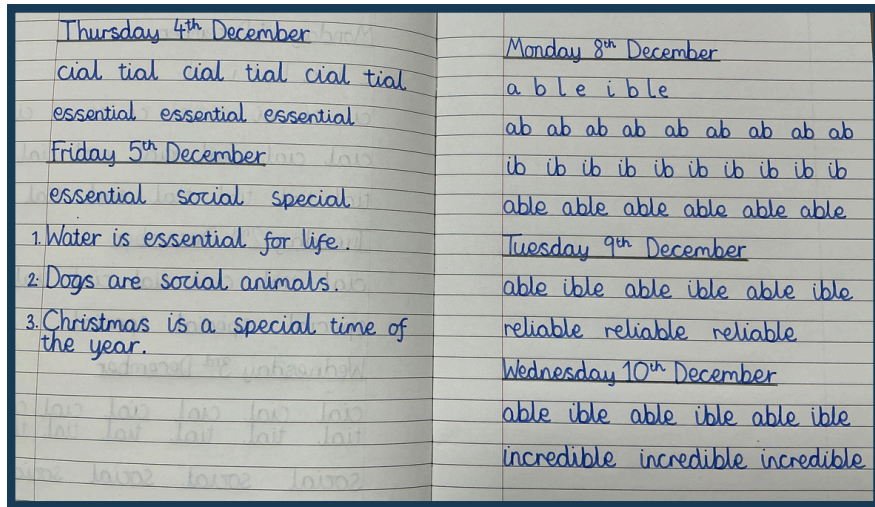 Thursday 4th December
cial tial cial tial cial tial
essential essential essential
Friday 5th December
essential social special
1. Water is essential for life.
2. Dogs are social animals.
3. Christmas is a special time of
the year.
Monday 8th December
a b l e i b l e
ab ab ab ab ab ab ab ab ab
ib ib ib ib ib ib ib ib ib ib
able able able able able able
Tuesday 9th December
able ible able ible able ible
reliable reliable reliable
Wednesday 10th December
able ible able ible able ible
incredible incredible incredible